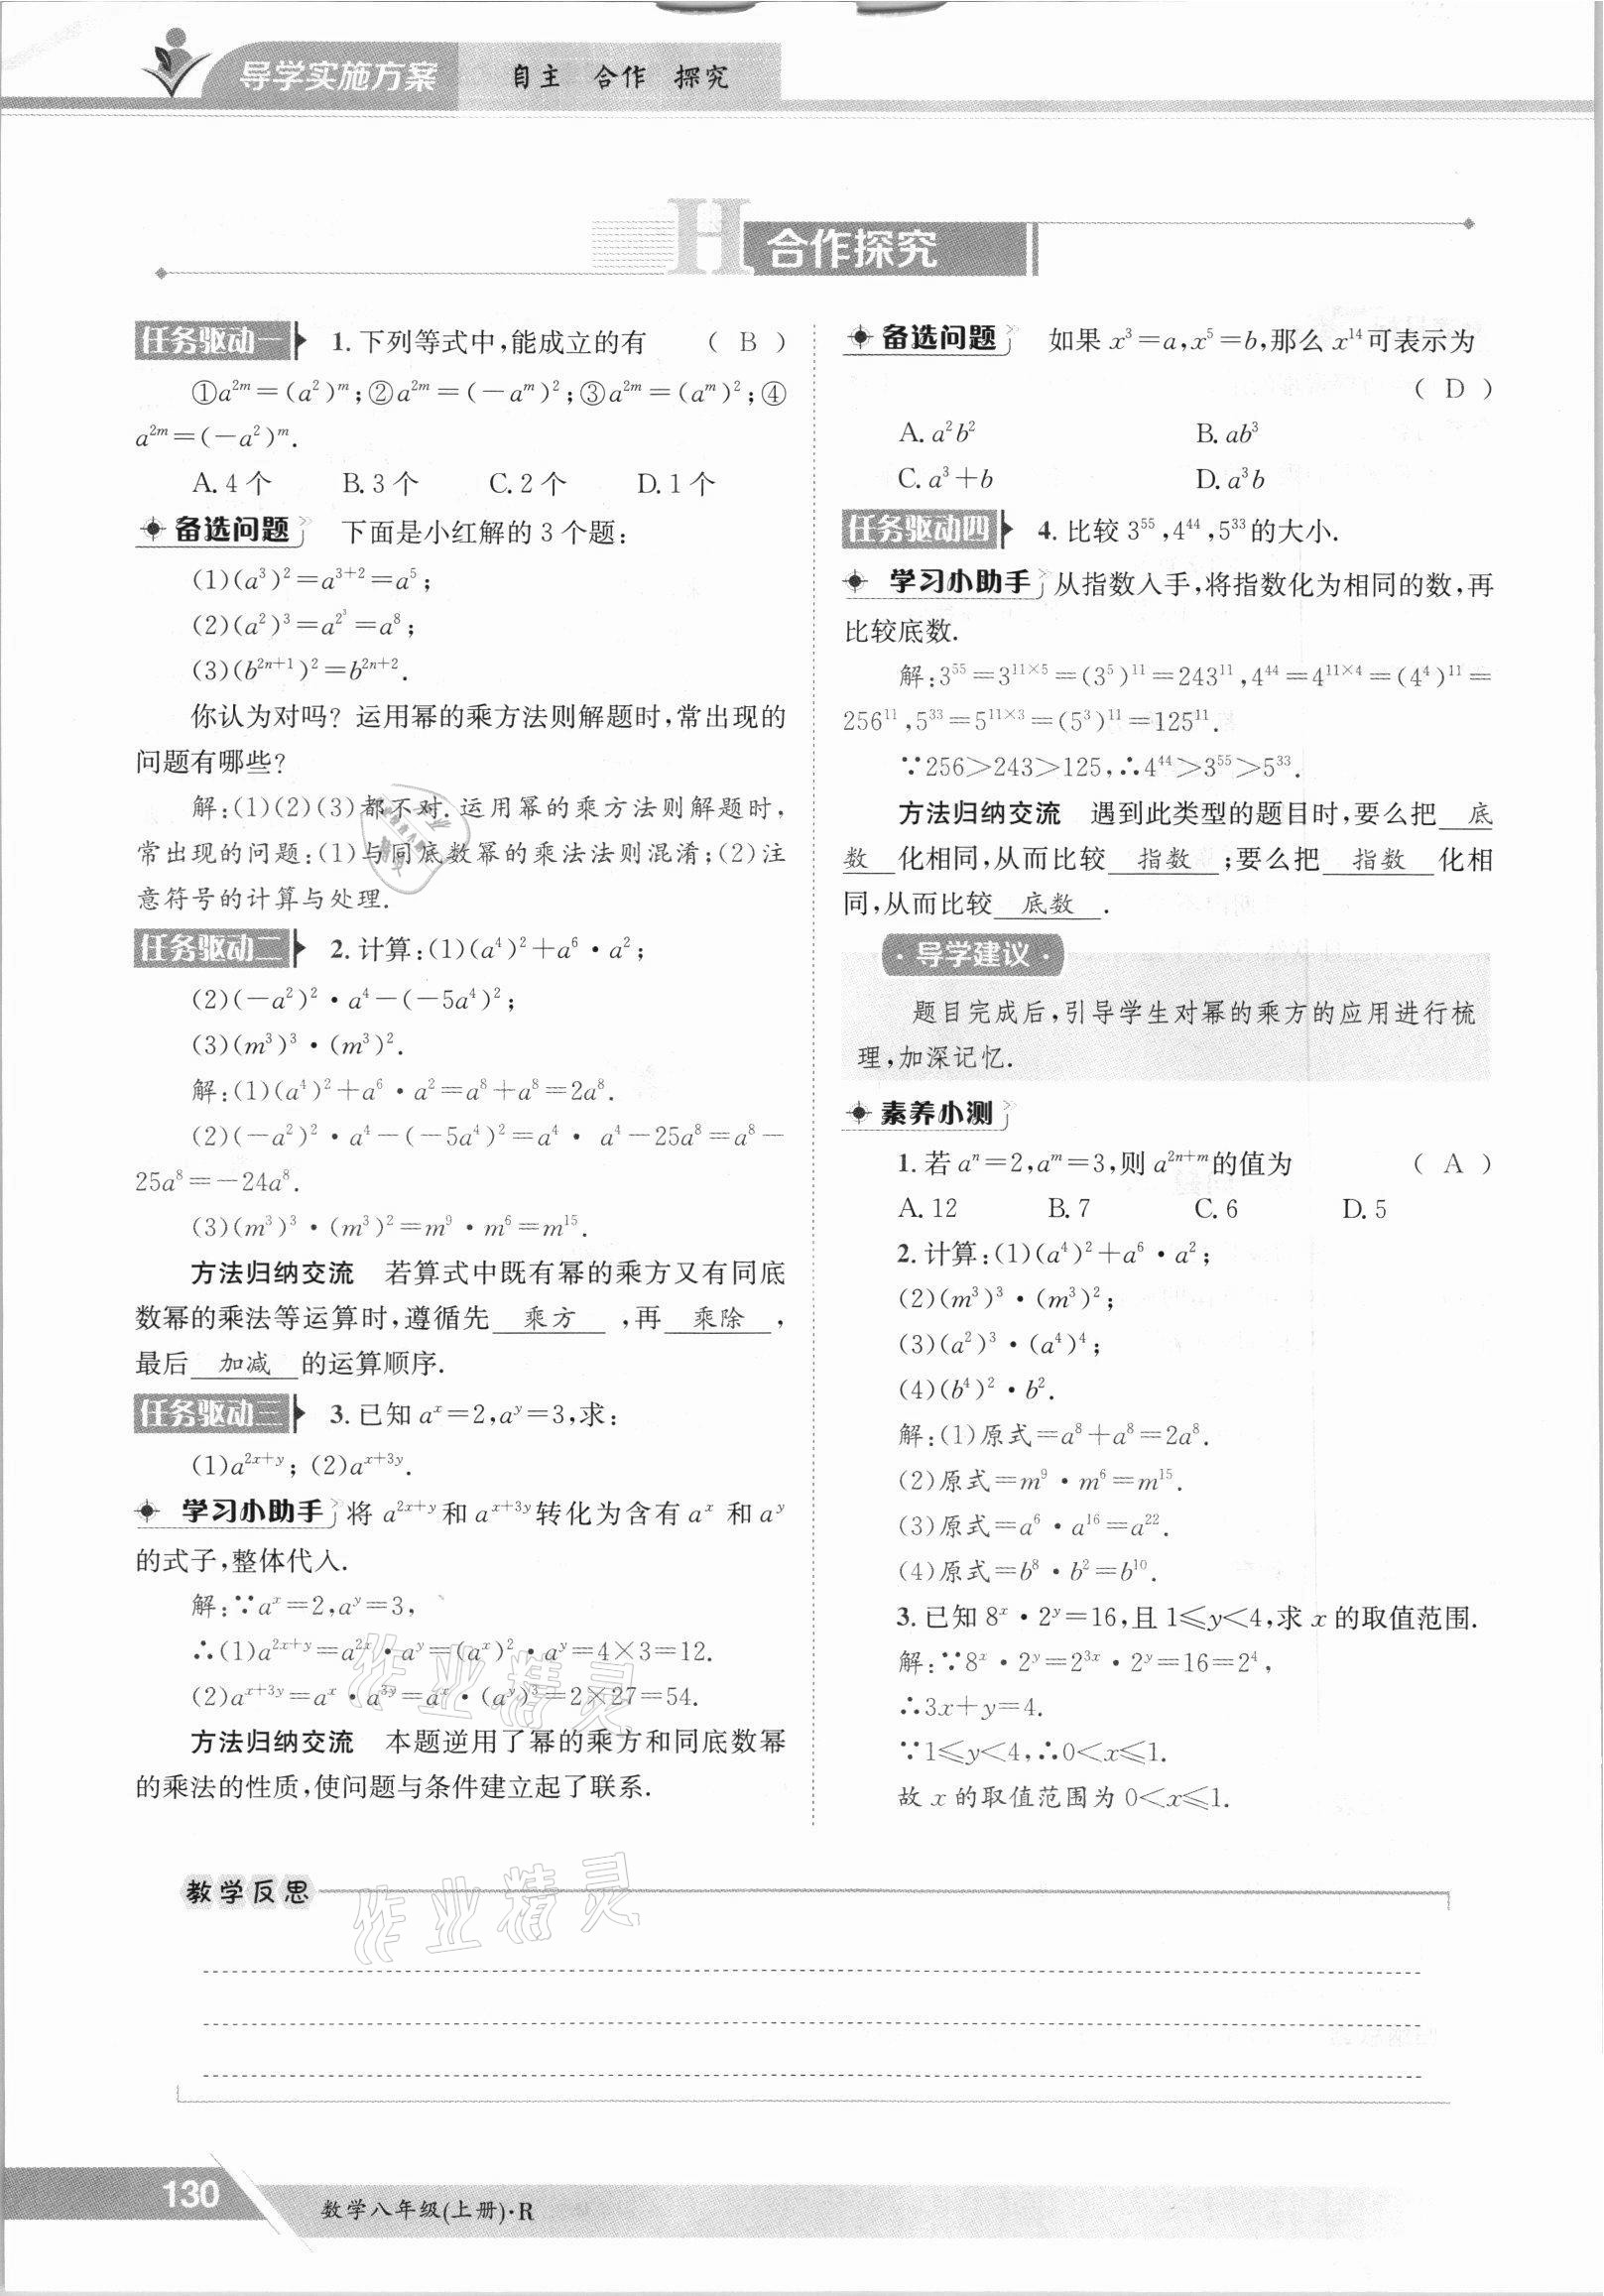 导学实施方案 自主 合作 探究
H 合作探究
任务驱动一 1. 下列等式中,能成立的有 ( B )
①a^{2m}=(a²)^m;②a^{2m}=(-a^m)²;③a^{2m}=(a^m)²;④
a^{2m}=(-a²)^m.
A. 4 个 B. 3 个 C. 2 个 D. 1 个
备选问题 下面是小红解的 3 个题:
(1)(a³)²=a^{3+2}=a⁵;
(2)(a²)³=a^{2³}=a⁸;
(3)(b^{2n+1})²=b^{2n+2}.
你认为对吗? 运用幂的乘方法则解题时,常出现的
问题有哪些?
解:(1)(2)(3)都不对.运用幂的乘方法则解题时,
常出现的问题:(1)与同底数幂的乘法法则混淆;(2)注
意符号的计算与处理.
任务驱动二 2. 计算:(1)(a⁴)²+a⁶·a²;
(2)(-a²)²·a⁴-(-5a⁴)²;
(3)(m³)³·(m³)².
解:(1)(a⁴)²+a⁶·a²=a⁸+a⁸=2a⁸.
(2)(-a²)²·a⁴-(-5a⁴)²=a⁴· a⁴-25a⁸=a⁸-
25a⁸=-24a⁸.
(3)(m³)³·(m³)²=m⁹·m⁶=m¹⁵.
方法归纳交流 若算式中既有幂的乘方又有同底
数幂的乘法等运算时,遵循先 乘方 ,再 乘除 ,
最后 加减 的运算顺序.
任务驱动三 3. 已知 a^x=2,a^y=3,求:
(1)a^{2x+y}; (2)a^{x+3y}.
学习小助手 将 a^{2x+y}和 a^{x+3y}转化为含有 a^x 和 a^y
的式子,整体代入.
解:∵a^x=2,a^y=3,
∴(1)a^{2x+y}=a^{2x}·a^y=(a^x)²·a^y=4×3=12.
(2)a^{x+3y}=a^x·a^{3y}=a^x·(a^y)³=2×27=54.
方法归纳交流 本题逆用了幂的乘方和同底数幂
的乘法的性质,使问题与条件建立起了联系.
备选问题 如果 x³=a,x⁵=b,那么 x¹⁴可表示为
( D )
A. a²b² B. ab³
C. a³+b D. a³b
任务驱动四 4. 比较 3⁵⁵,4⁴⁴,5³³的大小.
学习小助手 从指数入手,将指数化为相同的数,再
比较底数.
解:3⁵⁵=3^{11×5}=(3⁵)¹¹=243¹¹,4⁴⁴=4^{11×4}=(4⁴)¹¹=
256¹¹,5³³=5^{11×3}=(5³)¹¹=125¹¹.
∵256>243>125,∴4⁴⁴>3⁵⁵>5³³.
方法归纳交流 遇到此类型的题目时,要么把 底
数 化相同,从而比较 指数 ;要么把 指数 化相
同,从而比较 底数 .
·导学建议·
题目完成后,引导学生对幂的乘方的应用进行梳
理,加深记忆.
素养小测
1. 若 a^n=2,a^m=3,则 a^{2n+m}的值为 ( A )
A. 12 B. 7 C. 6 D. 5
2. 计算:(1)(a⁴)²+a⁶·a²;
(2)(m³)³·(m³)²;
(3)(a²)³·(a⁴)⁴;
(4)(b⁴)²·b².
解:(1)原式=a⁸+a⁸=2a⁸.
(2)原式=m⁹·m⁶=m¹⁵.
(3)原式=a⁶·a¹⁶=a²².
(4)原式=b⁸·b²=b¹⁰.
3. 已知 8^x·2^y=16,且 1≤y<4,求 x 的取值范围.
解:∵8^x·2^y=2^{3x}·2^y=16=2⁴,
∴3x+y=4.
∵1≤y<4,∴0<x≤1.
故 x 的取值范围为 0<x≤1.
作业精灵
教学反思
作业精灵
130 数学八年级(上册)·R